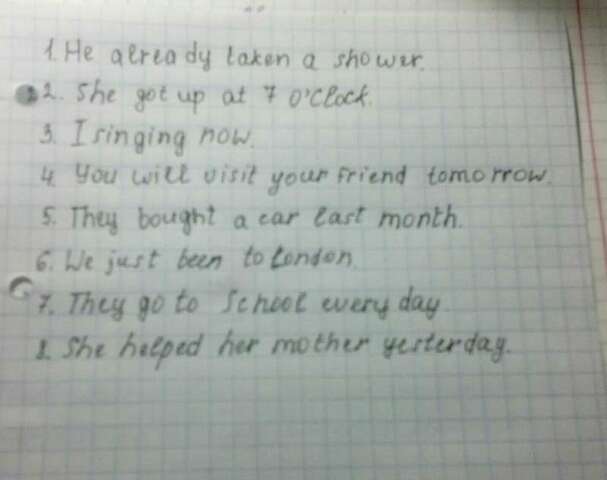 1. He already taken a shower.
2. She got up at 7 o'clock.
3. I singing now.
4. You will visit your friend tomorrow.
5. They bought a car last month.
6. We just been to London.
7. They go to school every day.
8. She helped her mother yesterday.